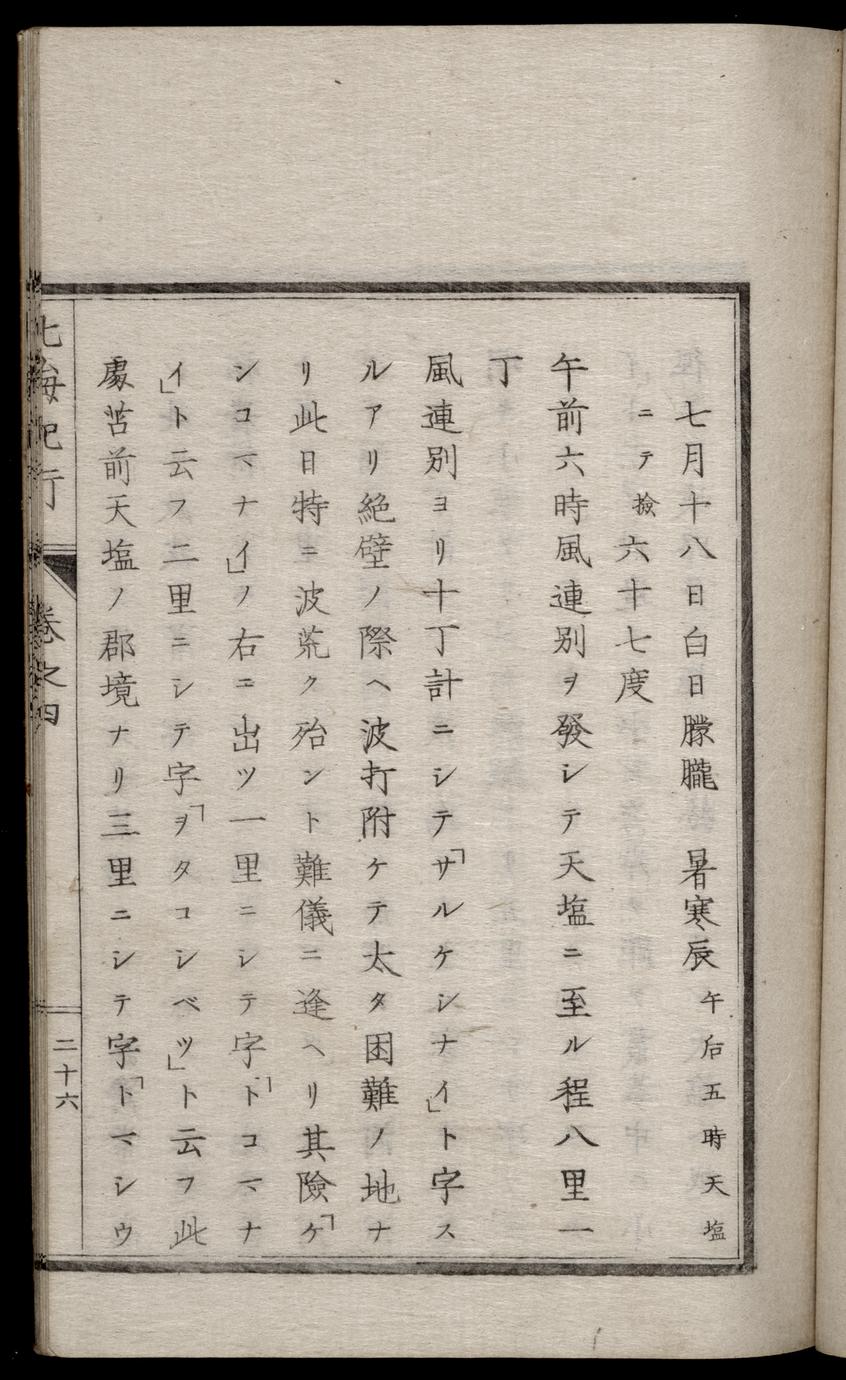 七月十八日白日朦朧　暑寒辰午后五時天塩
ニテ撿六十七度
午前六時風連別ヲ發シテ天塩ニ至ル程八里一
丁
風連別ヨリ十丁計ニシテ「サルケシナイ」ト字ス
ルアリ絶壁ノ際ヘ波打附ケテ太タ困難ノ地ナ
リ此日特ニ波荒ク殆ント難儀ニ逢ヘリ其險「ケ
シコマナイ」ノ右ニ出ツ一里ニシテ字「トコマナ
イ」ト云フ二里ニシテ字「ヲタコシベツ」ト云フ此
處苫前天塩ノ郡境ナリ三里ニシテ字「トマシウ
北海紀行
卷之四
二十六